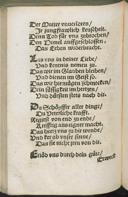 Der Mutter vnuerloren /
Je jungfrawlich keuscheit.
Den Tod für vns zubrochen /
Den Himel auffgeschlossen /
Das Leben widerbracht.
Las vns in deiner Liebe /
Vnd Kentnis nemen zu.
Das wir im Glauben bleiben /
Vnd dienen im Geist so.
Das wir hie mügen schmecken /
Dein süssigkeit im hertzen /
Vnd dürsten stets nach dir.
Du Schöpffer aller dinge /
Du Veterliche krafft.
Regirst von end zu ende /
Krefftig aus eigner macht.
Das hertz vns zu dir wende /
Vnd ker ab vnser sinne /
Das sie nicht jrrn von dir.
Ertöd vns durch dein güte /
Erweck